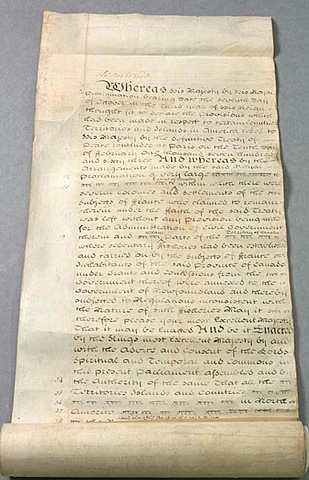 Whereas His Majesty by His Royal
Proclamation bearing Date the Seventh Day
of October in the Third Year of His Reign
thought fit to declare the Provisions which
had been made in respect to certain Countries
Territories and Islands in America ceded to
His Majesty by the definitive Treaty of
Peace concluded at Paris on the Tenth Day
of February One thousand seven hundred
and sixty three And whereas by the
Arrangements made by the said Royal
Proclamation a very large
within which there were
several Colonies and Settlements of the
Subjects of France who claimed to remain
therein under the Faith of the said Treaty
was left without any Provision being made
for the Administration of Civil Government
therein and Parts of the
where sedentary Fisheries had been established
and carried on by the Subjects of France
Inhabitants of the said Province of Canada
under Grants and Concessions from the
Government thereof were annexed to the
Government of Newfoundland and thereby
subjected to Regulations inconsistent with
the Nature of such Fisheries May it
therefore please your most Excellent Majesty
That it may be Enacted And be it Enacted
by the Kings most Excellent Majesty by and
with the Advice and Consent of the Lords
Spiritual and Temporal and Commons in
this present Parliament assembled and by
the Authority of the same That all the
Territories Islands and Countries
in North
America